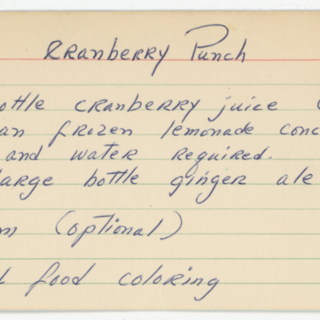 Cranberry Punch
ottle cranberry juice (
an frozen lemonade conc
and water required.
large bottle ginger ale
m (optional)
food coloring